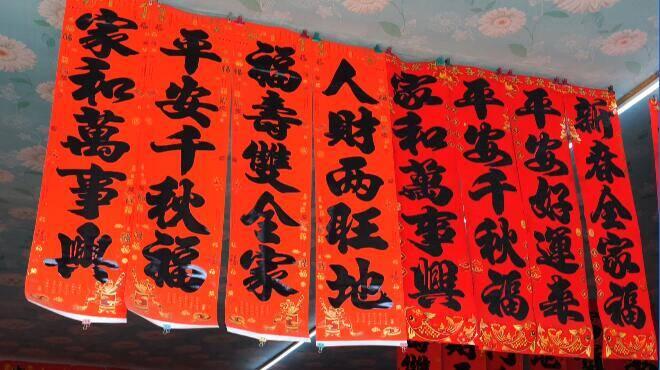 家和萬事興
平安千秋福
福壽雙全家
人財两旺地
家和萬事興
平安千秋福
平安好運来
新春全家福